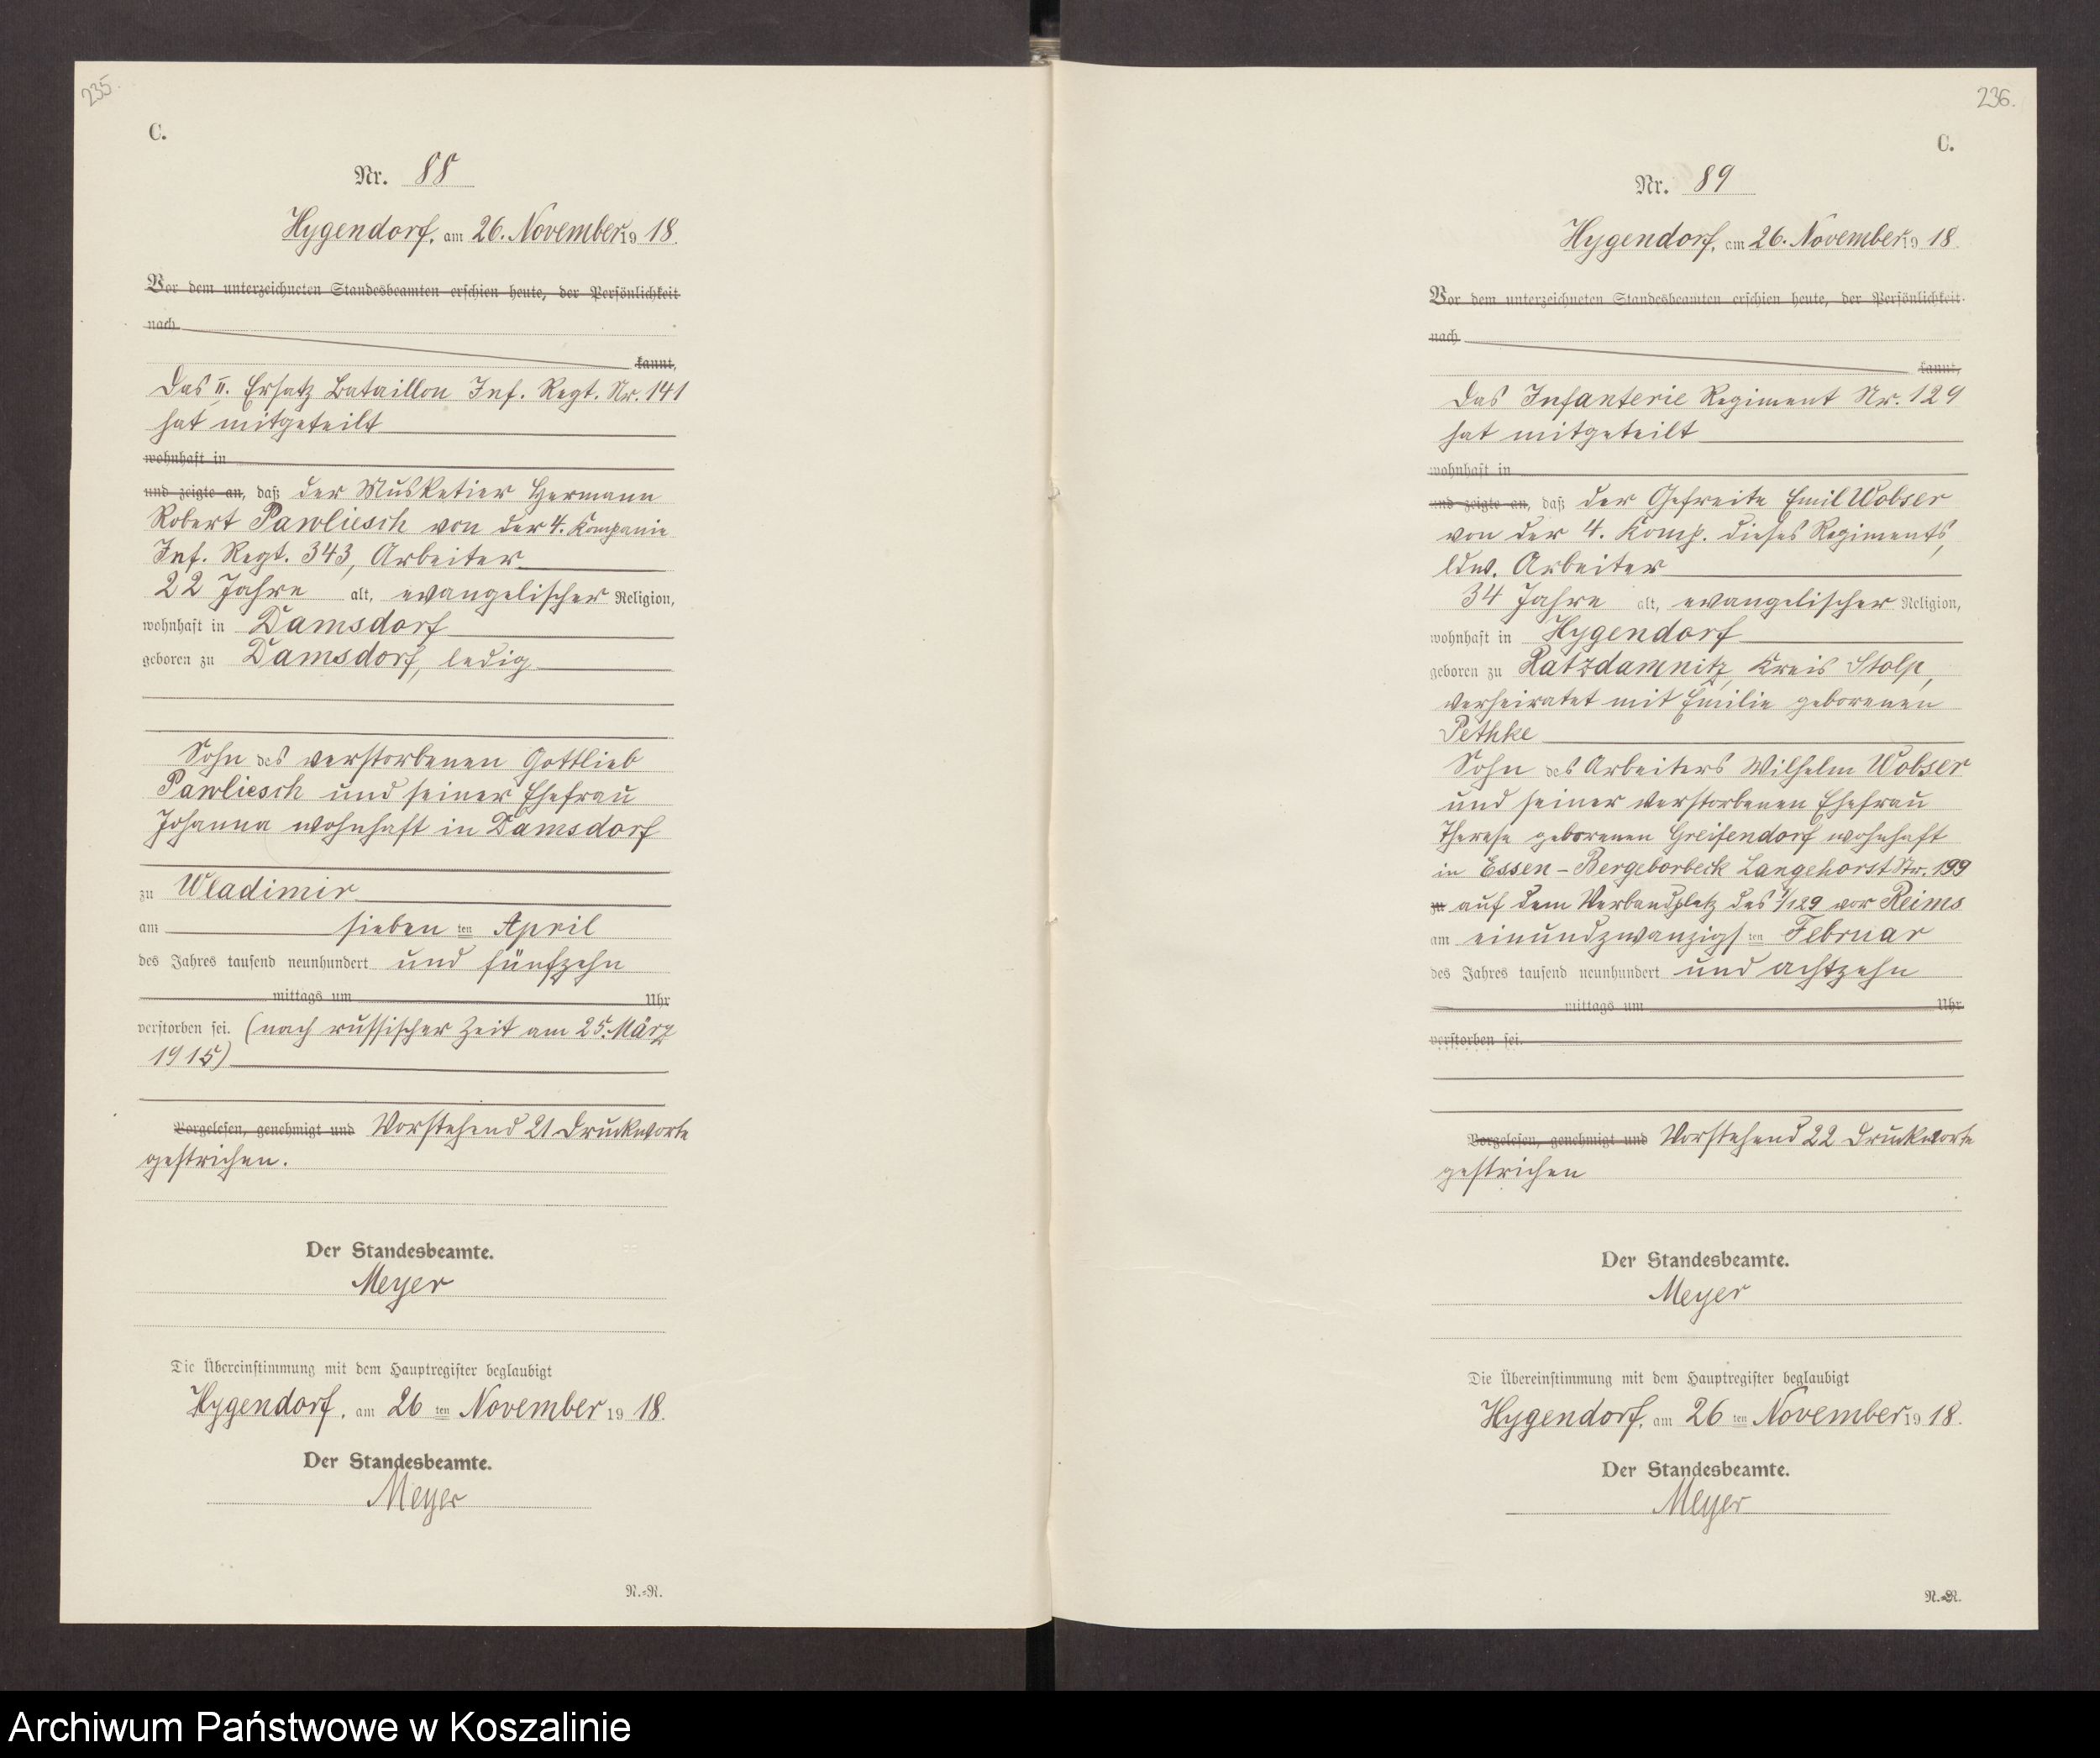 235.
C.
Nr. 88
Hygendorf, am 26. November 19 18.
Vor dem unterzeichneten Standesbeamten erschien heute, der Persönlichkeit
nach
kannt,
Das II. Ersatz Bataillon Inf. Regt. Nr. 141
hat mitgeteilt
wohnhaft in
und zeigte an, daß der Musketier Hermann
Robert Pawliesch von der 4. Kompanie
Inf. Regt. 343, Arbeiter
22 Jahre alt, evangelischer Religion,
wohnhaft in Damsdorf
geboren zu Damsdorf, ledig
Sohn des verstorbenen Gottlieb
Pawliesch und seiner Ehefrau
Johanna wohnhaft in Damsdorf
zu Wladimir
am sieben ten April
des Jahres tausend neunhundert und fünfzehn
mittags um Uhr
verstorben sei. (nach russischer Zeit am 25. März
1915)
Vorgelesen, genehmigt und Vorstehend 21 Druckworte
gestrichen.
Der Standesbeamte.
Meyer
Die Übereinstimmung mit dem Hauptregister beglaubigt
Hygendorf, am 26 ten November 19 18.
Der Standesbeamte.
Meyer
N.-R.
236.
C.
Nr. 89
Hygendorf, am 26. November 19 18.
Vor dem unterzeichneten Standesbeamten erschien heute, der Persönlichkeit
nach
kannt,
Das Infanterie Regiment Nr. 129
hat mitgeteilt
wohnhaft in
und zeigte an, daß der Gefreite Emil Wobser
von der 4. Komp. dieses Regiments,
ldw. Arbeiter
34 Jahre alt, evangelischer Religion,
wohnhaft in Hygendorf
geboren zu Ratzdamnitz, Kreis Stolp,
verheiratet mit Emilie geborenen
Pethke
Sohn des Arbeiters Wilhelm Wobser
und seiner verstorbenen Ehefrau
Therese geborenen Greifendorf wohnhaft
in Essen-Bergeborbeck Langehorst Str. 199
zu auf dem Verbandplatz des I/129 vor Reims
am einundzwanzigs ten Februar
des Jahres tausend neunhundert und achtzehn
mittags um Uhr
verstorben sei.
Vorgelesen, genehmigt und Vorstehend 22 Druckworte
gestrichen
Der Standesbeamte.
Meyer
Die Übereinstimmung mit dem Hauptregister beglaubigt
Hygendorf, am 26 ten November 19 18.
Der Standesbeamte.
Meyer
N.-R.
Archiwum Państwowe w Koszalinie